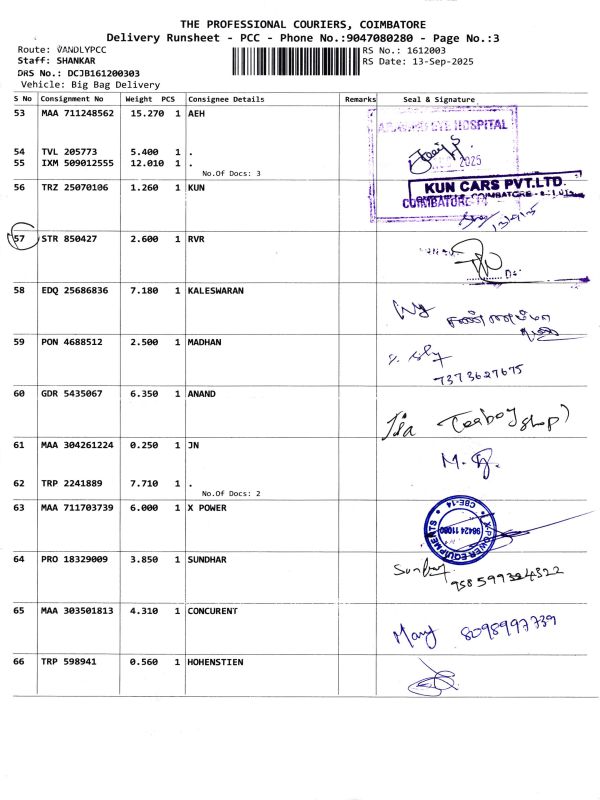 THE PROFESSIONAL COURIERS, COIMBATORE
Delivery Runsheet - PCC - Phone No.:9047080280 - Page No.:3
Route: VANDLYPCC
RS No.: 1612003
Staff: SHANKAR
RS Date: 13-Sep-2025
DRS No.: DCJB161200303
Vehicle: Big Bag Delivery
S No Consignment No Weight PCS Consignee Details Remarks Seal & Signature
53 MAA 711248562 15.270 1 AEH
HOSPITAL
54 TVL 205773 5.400 1 .
55 IXM 509012555 12.010 1 .
2025
No.Of Docs: 3
56 TRZ 25070106 1.260 1 KUN
KUN CARS PVT.LTD.
COIMBATORE
57 STR 850427 2.600 1 RVR
58 EDQ 25686836 7.180 1 KALESWARAN
59 PON 4688512 2.500 1 MADHAN
7373627675
60 GDR 5435067 6.350 1 ANAND
shop)
61 MAA 304261224 0.250 1 JN
62 TRP 2241889 7.710 1 .
No.Of Docs: 2
63 MAA 711703739 6.000 1 X POWER
X POWER EQUIPMENTS
CBE-14
98424 11080
64 PRO 18329009 3.850 1 SUNDHAR
65 MAA 303501813 4.310 1 CONCURENT
Mary 8098997739
66 TRP 598941 0.560 1 HOHENSTIEN